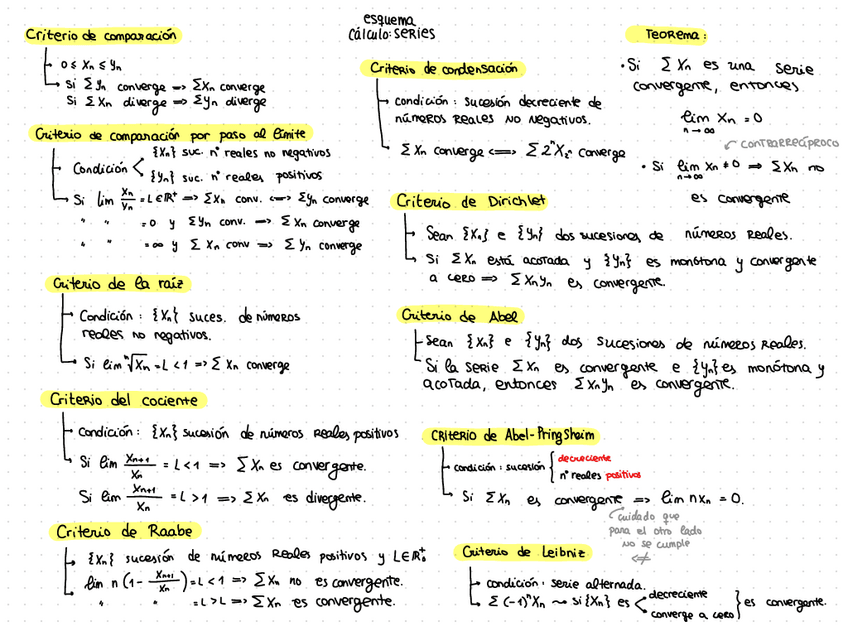 esquema
Cálculo: SERIES
Criterio de comparación
0 ≤ Xn ≤ Yn
Si Σ Yn converge => ΣXn converge
Si ΣXn diverge => ΣYn diverge
Criterio de comparación por paso al límite
Condición < {Xn} suc. nº reales no negativos
{Yn} suc. nº reales positivos
Si lim Xn/Yn = L∈ℝ⁺ => ΣXn conv. <=> ΣYn converge
" " = 0 y ΣYn conv. => ΣXn converge
" " = ∞ y ΣXn conv => ΣYn converge
Criterio de la raíz
Condición: {Xn} suces. de números
reales no negativos.
Si lim ⁿ√Xn = L < 1 => ΣXn converge
Criterio del cociente
Condición: {Xn} sucesión de números reales positivos
Si lim Xn+1/Xn = L < 1 => ΣXn es convergente.
Si lim Xn+1/Xn = L > 1 => ΣXn es divergente.
Criterio de Raabe
{Xn} sucesión de números reales positivos y L∈ℝ₀⁺
lim n (1 - Xn+1/Xn) = L < 1 => ΣXn no es convergente.
" " = L > L => ΣXn es convergente.
Criterio de condensación
condición: sucesión decreciente de
números reales no negativos.
ΣXn converge <=> Σ2ⁿX₂ⁿ converge
Criterio de Dirichlet
Sean {Xn} e {Yn} dos sucesiones de números reales.
Si ΣXn está acotada y {Yn} es monótona y convergente
a cero => ΣXnYn es convergente.
Criterio de Abel
Sean {Xn} e {Yn} dos sucesiones de números reales.
Si la serie ΣXn es convergente e {Yn} es monótona y
acotada, entonces ΣXnYn es convergente.
Criterio de Abel-Pringsheim
condición: sucesión { decreciente
nº reales positivos
Si ΣXn es convergente => lim nXn = 0.
cuidado que
para el otro lado
no se cumple
<≠
Criterio de Leibniz
condición: serie alternada.
Σ(-1)ⁿXn ~> si {Xn} es < decreciente
converge a cero } es convergente.
TEOREMA:
• Si ΣXn es una serie
convergente, entonces
lim Xn = 0
n→∞
CONTRARRECÍPROCO
• Si lim Xn ≠ 0 => ΣXn no
n→∞
es convergente